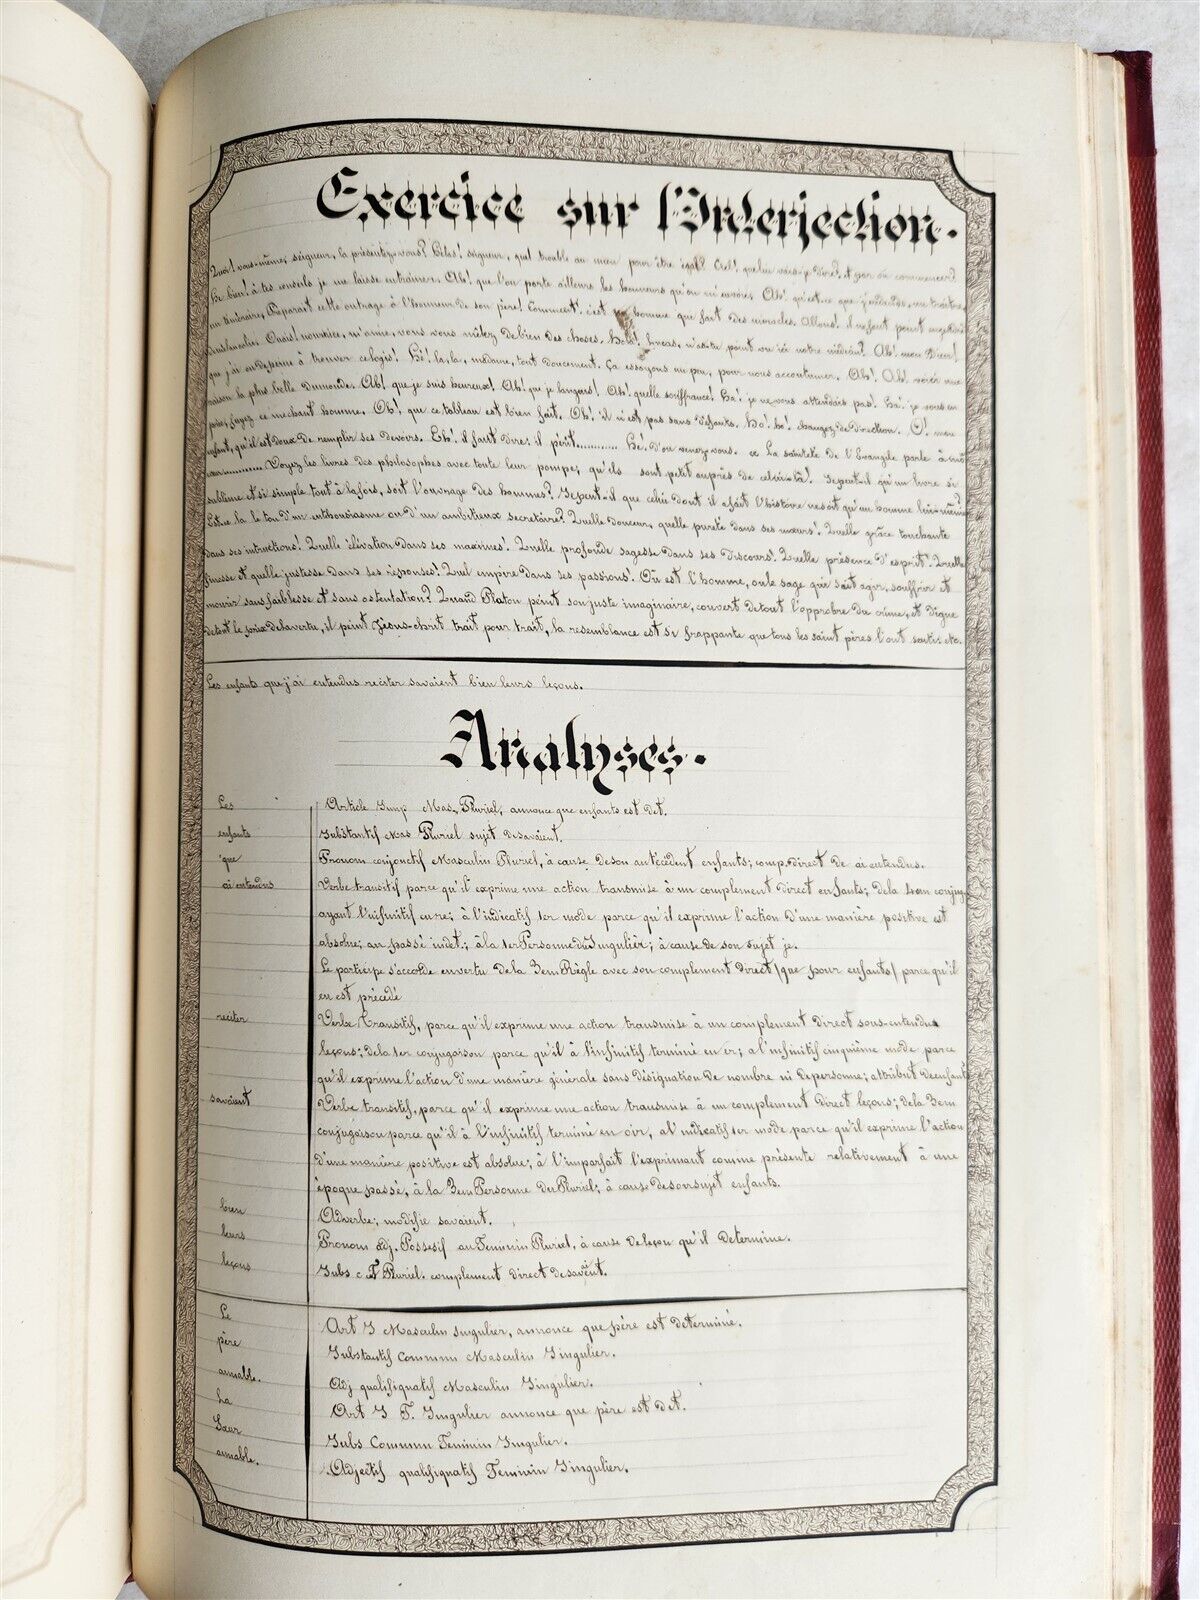 Exercice sur l'Interjection.
Quoi! vous-même, seigneur, la présentez-vous? Hélas! seigneur, quel trouble au mien peut être égal? Ciel! que lui vais-je dire? et par où commencer?
He bien! à tes conseils je me laisse entrainer. Ah! que l'on porte ailleurs les honneurs qu'on m'envoie. Ah! qu'est-ce que j'entends, me traiter
un téméraire, Reparant cette outrage à l'honneur de son père! Comment! c'est homme que fait des miracles. Allons! il ne faut point
Ouais! nourrice, m'amie, vous vous mêlez de bien des choses. Hola! lucas, n'as-tu point vu ici notre médecin? Ah! mon Dieu!
que j'ai eu de peine à trouver ce logis! Hé! la, la, madame, tout doucement. Ça essayons un peu, pour nous accoutumer. Ah! Ah! voici une
raison la plus belle du monde. Ah! que je suis heureux! Ah! que je languis! Ah! quelle souffrance! Ha! je ne vous attendais pas! Ha! je vous en
prie, fuyez ce méchant homme. Oh! que ce tableau est bien fait. Oh! il n'est pas sans défauts. Ho! ho! changez de direction. O! mon
enfant, qu'il est doux de remplir ses devoirs. Eh! il faut dire: il périt........... Hé! d'où venez-vous. La sainteté de l'Evangile parle à mon
........... Voyez les livres des philosophes avec toute leur pompe; qu'ils sont petit auprès de celui-là! Se peut-il qu'un livre si
sublime et si simple tout à la fois, soit l'ouvrage des hommes? Se peut-il que celui dont il a fait l'histoire ne soit qu'un homme lui-même?
Est-ce la le ton d'un enthousiasme ou d'un ambitieux secretaire? Quelle douceur, quelle pureté dans ses mœurs! Quelle grâce touchante
dans ses intructions! Quelle élévation dans ses maximes! Quelle profonde sagesse dans ses discours! Quelle présence d'esprit! Quelle
finesse et quelle justesse dans ses réponses! Quel empire dans ses passions! Où est l'homme, ou le sage qui sait agir, souffrir et
mourir sans faiblesse et sans ostentation? Quand Platon peint son juste imaginaire, couvert de tout l'opprobre du crime, et digne
de tout le prix de la vertu, il peint Jésus-chrit trait pour trait, la resemblance est si frappante que tous les saint pères l'ont sentie etc.
Les enfants que j'ai entendus réciter savaient bien leurs leçons.
Analyses.
Les Article Simp Mas. Pluriel, annonce que enfants est det.
enfants Substantif Mas Pluriel sujet de savaient.
que Pronom conjonctif Masculin Pluriel, à cause de son antécédent enfants; comp. direct de ai entendus.
ai entendus Verbe transitif parce qu'il exprime une action transmise à un complement direct enfants; de la 4em conjug
ayant l'infinitif en re; à l'indicatif 1er mode parce qu'il exprime l'action d'une manière positive est
absolue; au passé indet.; à la 1er Personne du Singulier; à cause de son sujet je.
Le participe s'accorde en vertu de la 3em Règle avec son complement direct (que pour enfants) parce qu'il
en est précédé
reciter Verbe Transitif, parce qu'il exprime une action transmise à un complement direct sous-entendue
leçons; de la 1er conjugaison parce qu'il à l'infinitif terminé en er; a l'infinitif cinquième mode parce
qu'il exprime l'action d'une manière générale sans désignation de nombre ni de personne; attribut de enfant
savaient Verbe transitif, parce qu'il exprime une action transmise à un complement direct leçons; de la 3em
conjugaison parce qu'il à l'infinitif terminé en oir, a l'indicatif 1er mode parce qu'il exprime l'action
d'une manière positive est absolue; à l'imparfait l'exprimant comme présente relativement à une
époque passé, à la 3em Personne du Pluriel; à cause de son sujet enfants.
bien Adverbe; modifie savaient.
leurs Pronom adj. Possesif au Feminin Pluriel, à cause de leçon qu'il determine.
leçons Subs c. F Pluriel. complement direct de savent.
Le Art S Masculin singulier, annonce que père est determiné.
père Substantif Commun Masculin Singulier.
aimable. Adj qualifiquatif Masculin Singulier.
La Art S F. Singulier annonce que père est det.
Sœur Subs Commun Feminin Singulier.
aimable. Adjectif qualifiquatif Feminin Singulier.